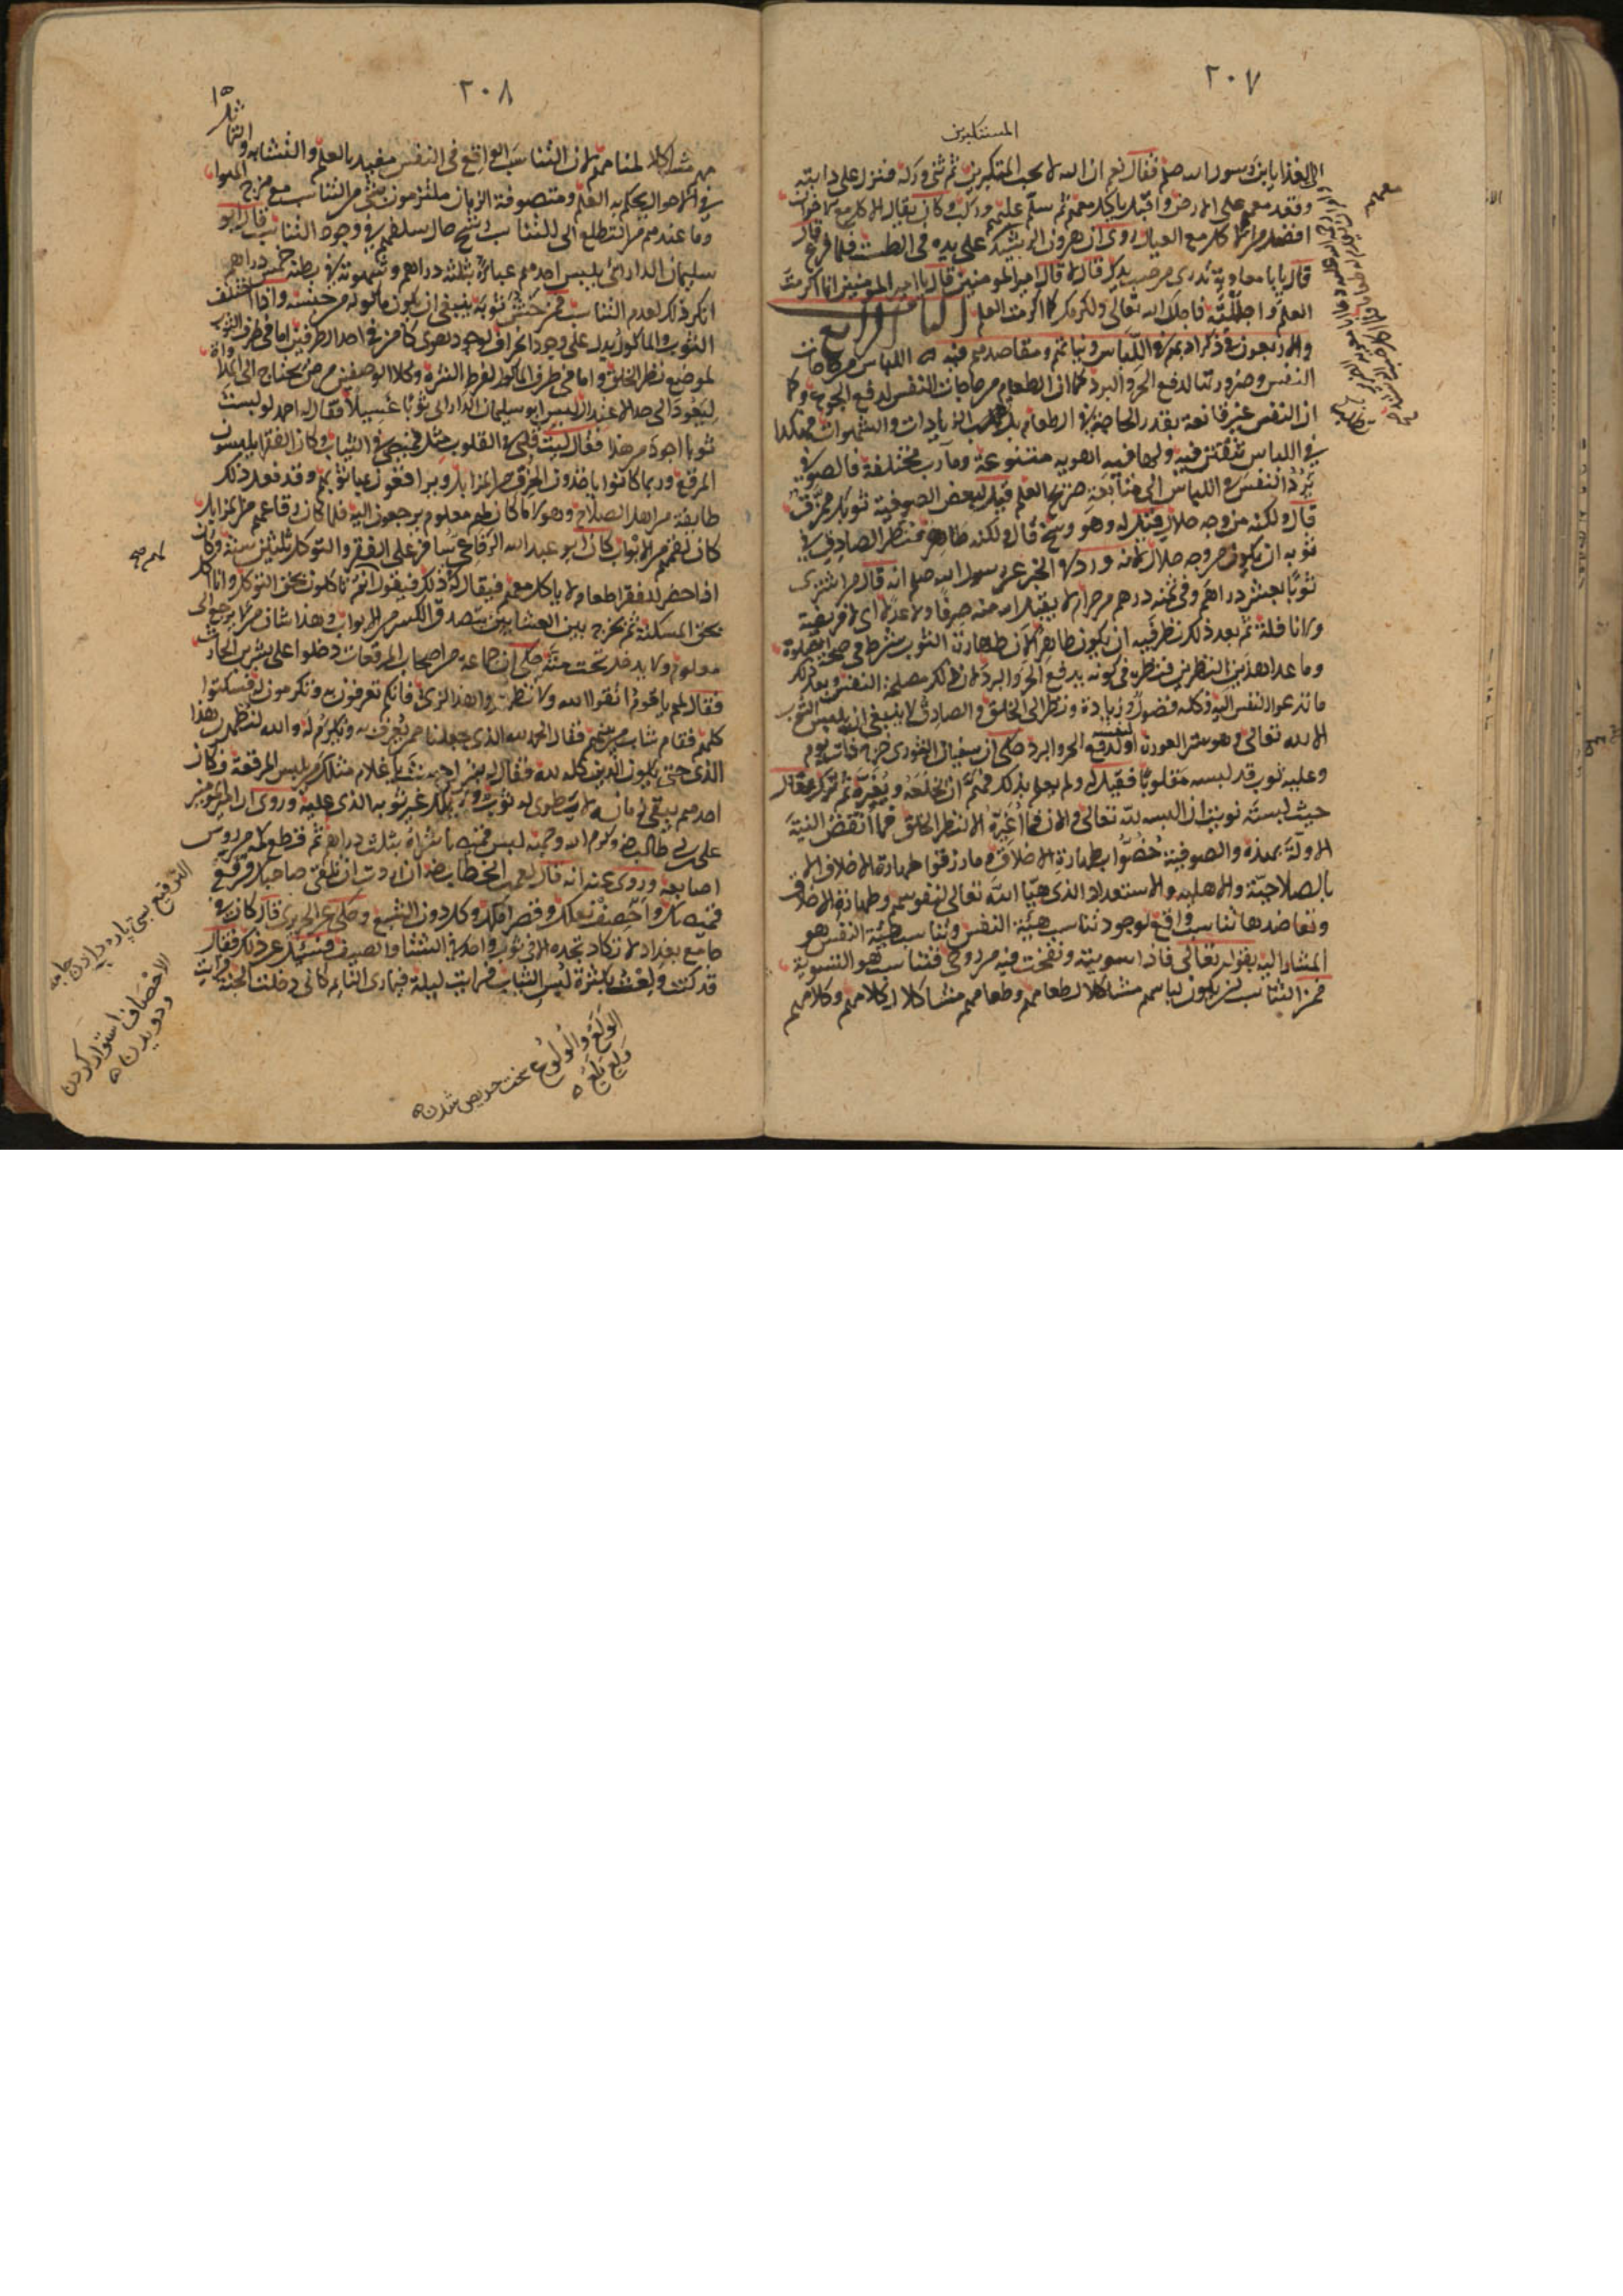 ٢٠٧
المستكبرين
الى الغذا يا بن رسول الله صلعم فقال نعم ان الله لا يحب المتكبرين ثم ثنى وركه فنزل على دابته
وقعد معهم على الارض واقبل ياكل معهم ثم سلم عليهم وركب وكان يقال الاكل مع الاخوان
افضل من الاكل مع العيال روى ان هرون الرشيد على يده في الطست فلما فرغ قال
قال يابا معاوية تدرى من صب يدك قال لا قال امير المومنين قال يا امير المومنين انما اكرمت
العلم واجللته فاجلك الله تعالى واكرمك كما اكرمت العلم الباب الرابع
والاربعون في ذكر ادبهم في اللباس ونياتهم ومقاصدهم فيه اللباس من حاجات
النفس وضرورتها لدفع الحر والبرد كما ان الطعام من حاجات النفس لدفع الجوع وكما
ان النفس غير قانعة بقدر الحاجة من الطعام بل تطلب الزيادات والشهوات فهكذا
في اللباس تتفنن فيه ولها فيه اهوية متنوعة ومآرب مختلفة فالصوفي
يرد النفس في اللباس الى متابعة صريح العلم قيل لبعض الصوفية ثوبك ممزق
قال ولكنه من وجه حلال فقيل له وهو وسخ قال ولكنه طاهر فنظر الصادق في
ثوبه ان يكون من وجه حلال لانه ورد في الخبر عن رسول الله صلعم انه قال من اشترى
ثوبا بعشر دراهم وفي ثمنه درهم من حرام لا يقبل الله منه صرفا ولا عدلا اى لا فريضة
ولا نافلة ثم بعد ذلك نظر فيه ان يكون طاهرا لان طهارة الثوب شرط في صحة الصلوة
وما عدا هذين النظرين فنظره في كونه يدفع الحر والبرد لان ذلك مصلحة النفس وبعد ذلك
ما تدعو النفس اليه فكله فضول وزيادة ونظر الى الخلق والصادق لا ينبغي ان يلبس الثوب
الا لله تعالى وهو ستر العورة او لنفسه لدفع الحر والبرد حكى ان سفيان الثورى خرج ذات يوم
وعليه ثوب قد لبسه مقلوبا فقيل له ولم يعلم بذلك فهم ان يخلعه ويغيره ثم تركه فقال
حيث لبسته نويت انى البسه لله تعالى والان فما اغيره الا لنظر الخلق فما انقض النية
الاولة بهذه والصوفية خصوا بطهارة الاخلاق وما رزقوا طهارة الاخلاق الا
بالصلاحية والاهلية والاستعداد الذى هيا الله تعالى لنفوسهم وطهارة الاخلاق
وتعاضدها تناسب واقع لوجود تناسب هيئة النفس وتناسب هيئة النفس هو
المشار اليه بقوله تعالى فاذا سويته ونفخت فيه من روحى فتناسب هو التسوية
فمن التناسب ان يكون لباسهم مشاكلا لطعامهم وطعامهم مشاكلا لكلامهم وكلامهم
٢٠٨
مشاكلا لمنامهم لان التناسب الواقع في النفس مقيد بالعلم والتشابه والتماثل
في الاحوال يحكم به العلم ومتصوفة الزمان ملتزمون بشى من التناسب مع مزج الهوا
وما عندهم من التطلع الى التناسب رشح حال سلفهم في وجود التناسب قال ابو
سليمان الدارانى يلبس احدهم عباة بثلثة دراهم وشهوته في بطنه خمسة دراهم
انكر ذلك لعدم التناسب فمن خشن ثوبه ينبغي ان يكون ماكوله من جنسه واذا اختلف
الثوب والماكول يدل على وجود انحراف لوجود هوى كامن في احد الطرفين اما في طرف الثوب
لموضع نظر الخلق واما في طرف الماكول لفرط الشره وكلا الوصفين مرض يحتاج الى المداواة
ليعود الى حد الاعتدال لبس ابو سليمان الدارانى ثوبا غسيلا فقال له احمد لو لبست
ثوبا اجود من هذا فقال ليت قلبى في القلوب مثل قميصى في الثياب وكان الفقرا يلبسون
المرقع وربما كانوا ياخذون الخرق من المزابل ويرقعون بها ثوبهم وقد فعل ذلك
طايفة من اهل الصلاح وهولا ما كان لهم معلوم يرجعون اليه فلما كان رقاعهم من المزابل
كان لقمهم من الابواب كان ابو عبد الله الرفاعى مثابرا على الفقر والتوكل ثلثين سنة وكان
اذا حضر للفقرا طعام لا ياكل معهم فيقال له في ذلك فيقول انتم تاكلون بحق التوكل وانا اكل
بحق المسكنة ثم يخرج بين العشايين يتصدق الكسر من الابواب وهذا شان من لا يرجع الى
معلوم ولا يدخل تحت منة حكى ان جماعة من اصحاب المرقعات دخلوا على بشر بن الحارث
فقال لهم يا قوم اتقوا الله ولا تظهروا هذا الزى فانكم تعرفون به وتكرمون له فسكتوا
كلهم فقام شاب منهم فقال الحمد لله الذى جعلنا ممن يعرف به ويكرم له والله لنظهرن هذا
الذى حتى يكون الدين كله لله فقال له بشر احسنت يا غلام مثلك من يلبس المرقعة وكان
احدهم يبقى زمانه لا يطوى له ثوب ولا يملك غير ثوبه الذى عليه وروى ان امير المومنين
على بن ابي طالب رضه وكرم الله وجهه لبس قميصا شراه بثلث دراهم ثم قطع كمه من روس
اصابعه وروى عنه انه قال لعمر بن الخطاب رضه ان اردت ان تلقى صاحبك فرقع
قميصك واخصف نعلك وقصر املك وكل دون الشبع وحكى عن الجريرى قال كان في
جامع بغداد رجل لا تكاد تجده الا في ثوب واحد في الشتا والصيف فسئل عن ذلك فقال
قد كنت ولعت بكثرة لبس الثياب فرايت ليلة فيما يرى النائم كانى دخلت الجنة فرايت
الترقيع بسى پاره در دادن جامه
الاخصاف استوار كردن
ودويدن
الولع والولوع سخت حريص شدن
ولع يلع